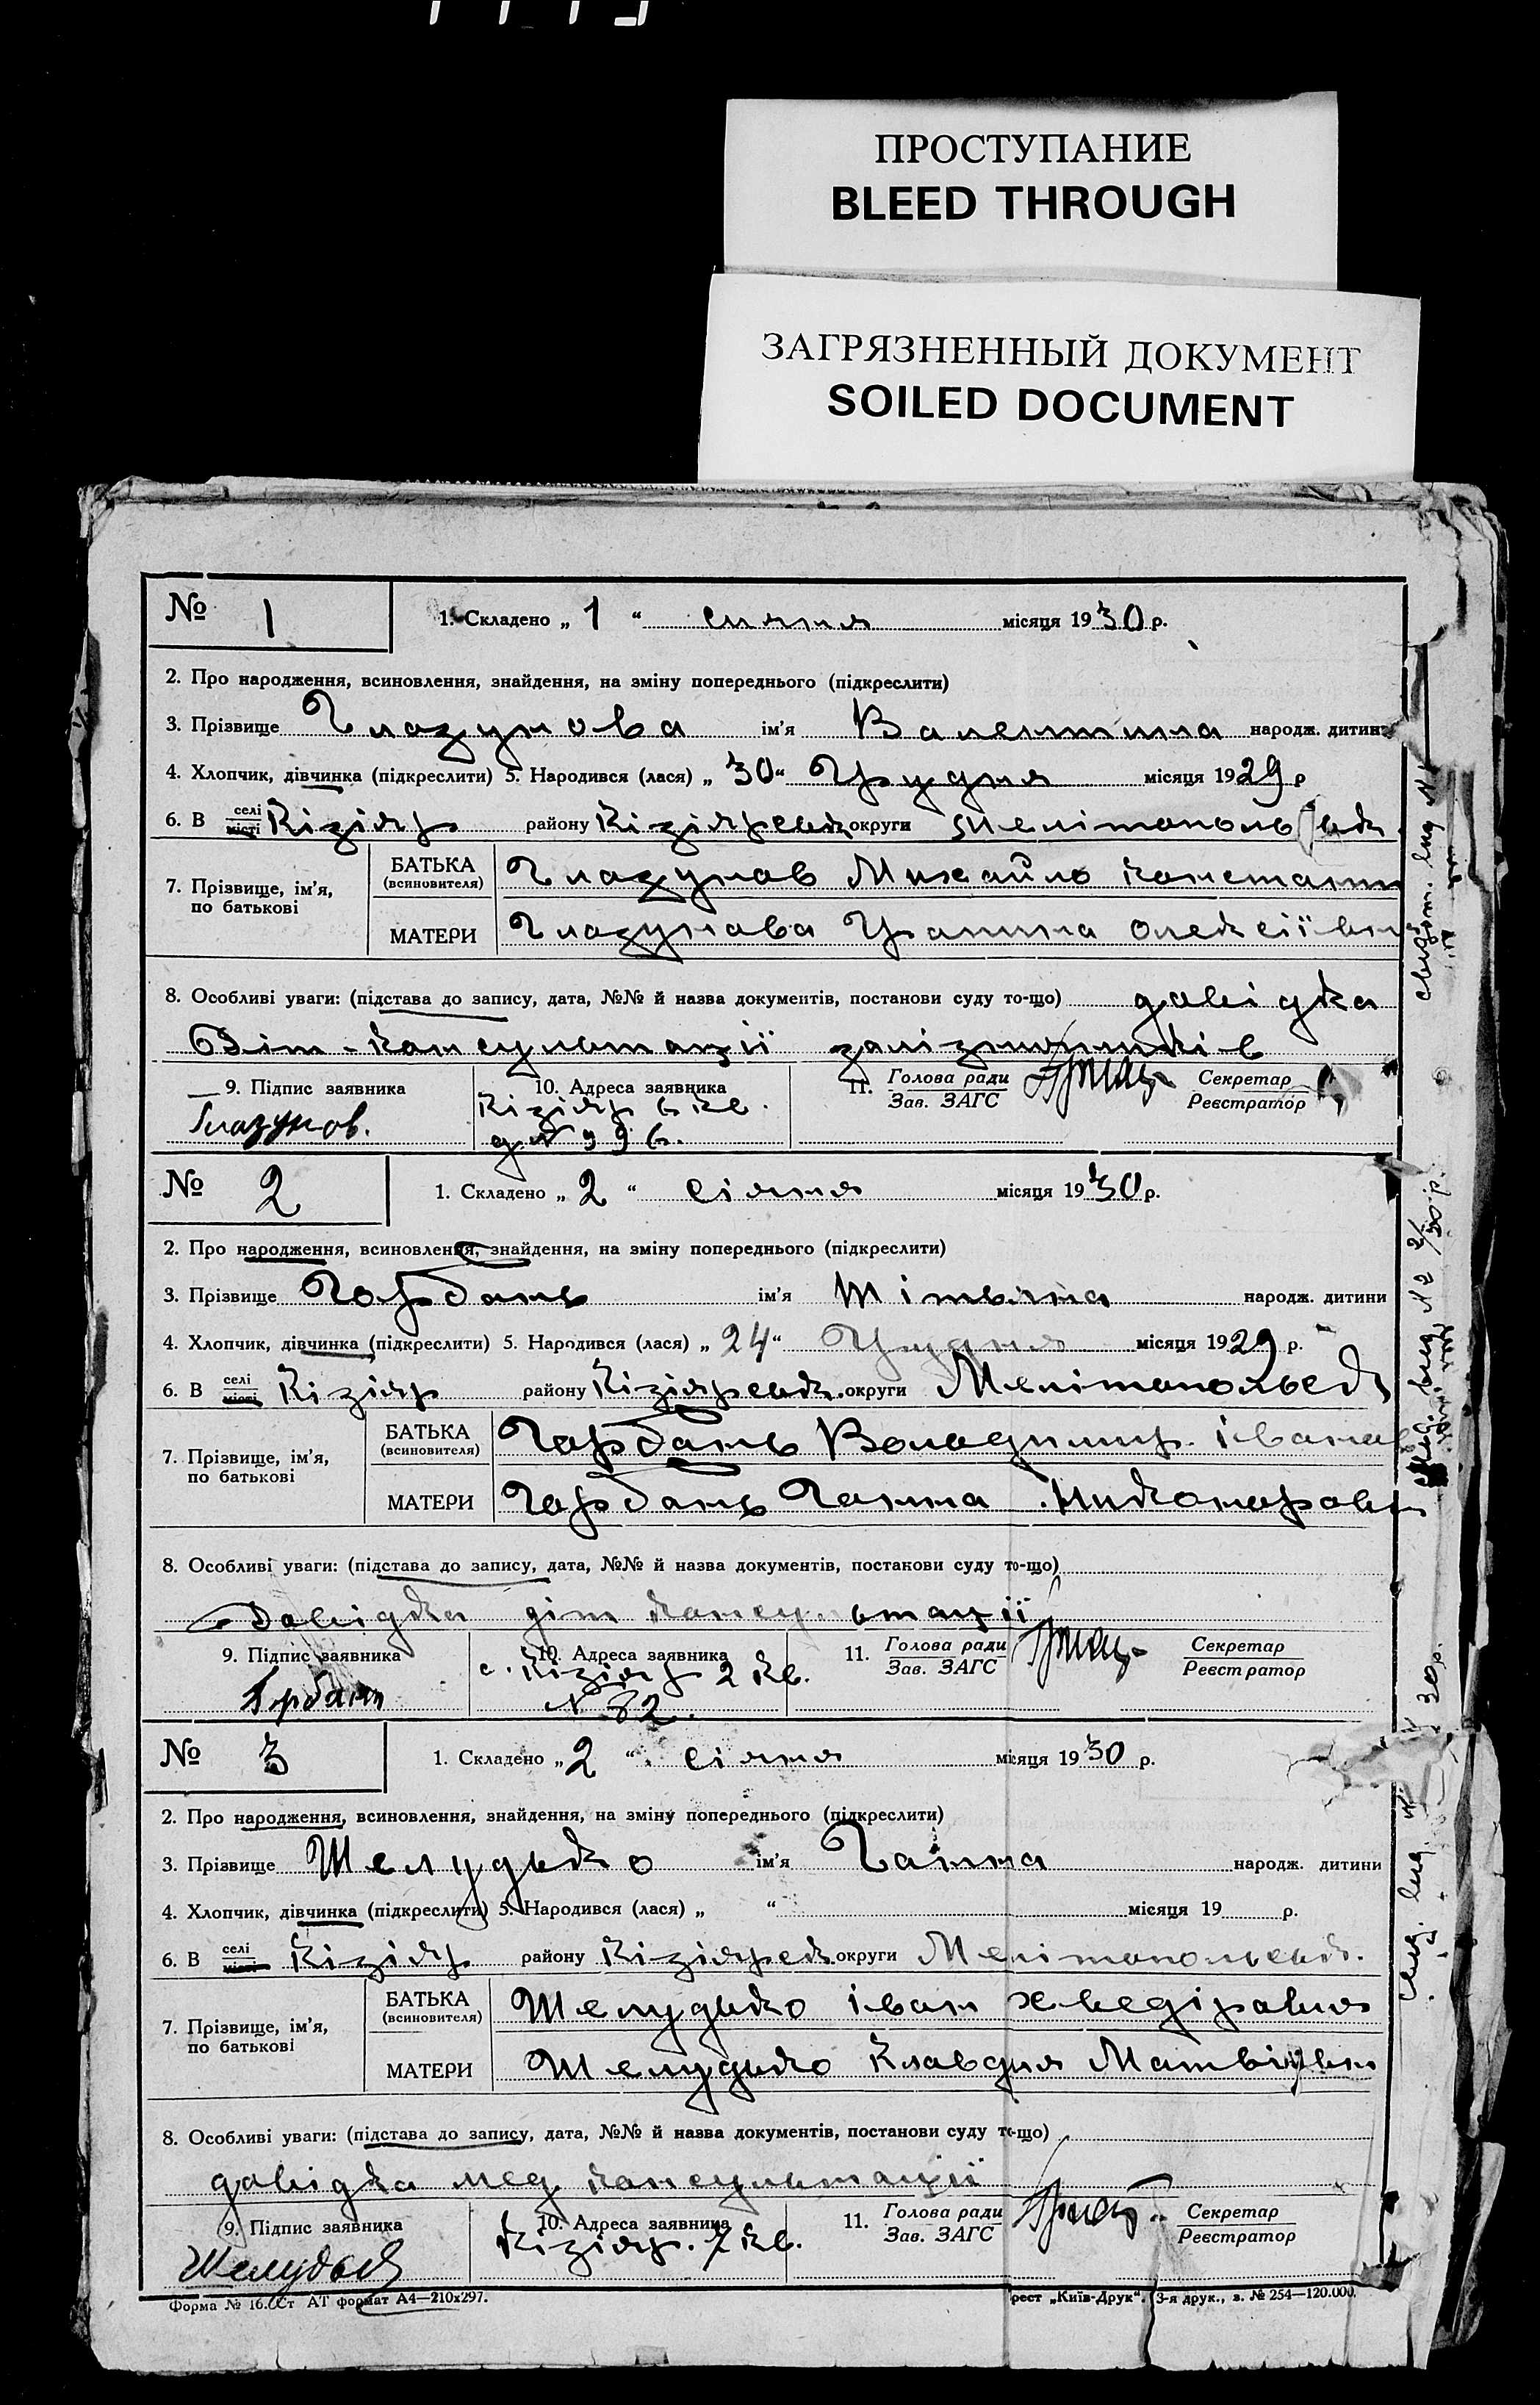 ПРОСТУПАНИЕ
BLEED THROUGH
ЗАГРЯЗНЕННЫЙ ДОКУМЕНТ
SOILED DOCUMENT
№ 1 1. Складено „ 1 “ січня місяця 1930 р.
2. Про народження, всиновлення, знайдення, на зміну попереднього (підкреслити)
3. Прізвище Глазунова ім'я Валентина народж. дитини
4. Хлопчик, дівчинка (підкреслити) 5. Народився (лася) „ 30 “ Грудня місяця 1929 р
6. В селі місті Кізіяр району Кізіяревськ округи Мелітопольськ
7. Прізвище, ім'я, по батькові БАТЬКА (всиновителя) Глазунов Михайло Констант
МАТЕРИ Глазунова Олексіївн
8. Особливі уваги: (підстава до запису, дата, №№ й назва документів, постанови суду то-що) довідка
Консультації залізничників
9. Підпис заявника 10. Адреса заявника 11. Голова ради Зав. ЗАГС Секретар Реєстратор
Глазунов. Кізіяр 6 кв.
№ 2 1. Складено „ 2 “ січня місяця 1930 р.
2. Про народження, всиновлення, знайдення, на зміну попереднього (підкреслити)
3. Прізвище Горбань ім'я народж. дитини
4. Хлопчик, дівчинка (підкреслити) 5. Народився (лася) „ 24 “ Грудня місяця 1929 р.
6. В селі місті Кізіяр району Кізіяревськ. округи Мелітопольськ
7. Прізвище, ім'я, по батькові БАТЬКА (всиновителя) Горбань Володимир Іванов
МАТЕРИ Горбань Ганна Никоноровн
8. Особливі уваги: (підстава до запису, дата, №№ й назва документів, постанови суду то-що)
Довідка діт консультації
9. Підпис заявника 10. Адреса заявника 11. Голова ради Зав. ЗАГС Секретар Реєстратор
Горбань с. Кізіяр 2 кв.
№ 82.
№ 3 1. Складено „ 2 “ січня місяця 1930 р.
2. Про народження, всиновлення, знайдення, на зміну попереднього (підкреслити)
3. Прізвище Шелудько ім'я Ганна народж. дитини
4. Хлопчик, дівчинка (підкреслити) 5. Народився (лася) „ “ місяця 19 р.
6. В селі місті Кізіяр району Кізіяревськ округи Мелітопольськ.
7. Прізвище, ім'я, по батькові БАТЬКА (всиновителя) Шелудько Іван Хведірович
МАТЕРИ Шелудько Клавдия Матвіївн
8. Особливі уваги: (підстава до запису, дата, №№ й назва документів, постанови суду то-що)
довідка мед консультації
9. Підпис заявника 10. Адреса заявника 11. Голова ради Зав. ЗАГС Секретар Реєстратор
Шелудько Кізіяр. 7 кв.
Форма № 16. Ст АТ формат А4—210х297. рест „Київ-Друк“. 3-я друк., з. № 254—120.000.